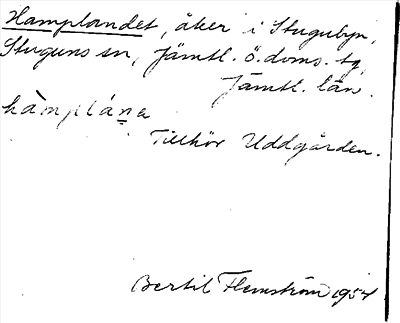 Hamplandet, åker i Stugubyn,
Stuguns sn, Jämtl. ö. doms. tg,
Jämtl. län.
hàmplána
Tillhör Uddgården.
Bertil Flemström 1954